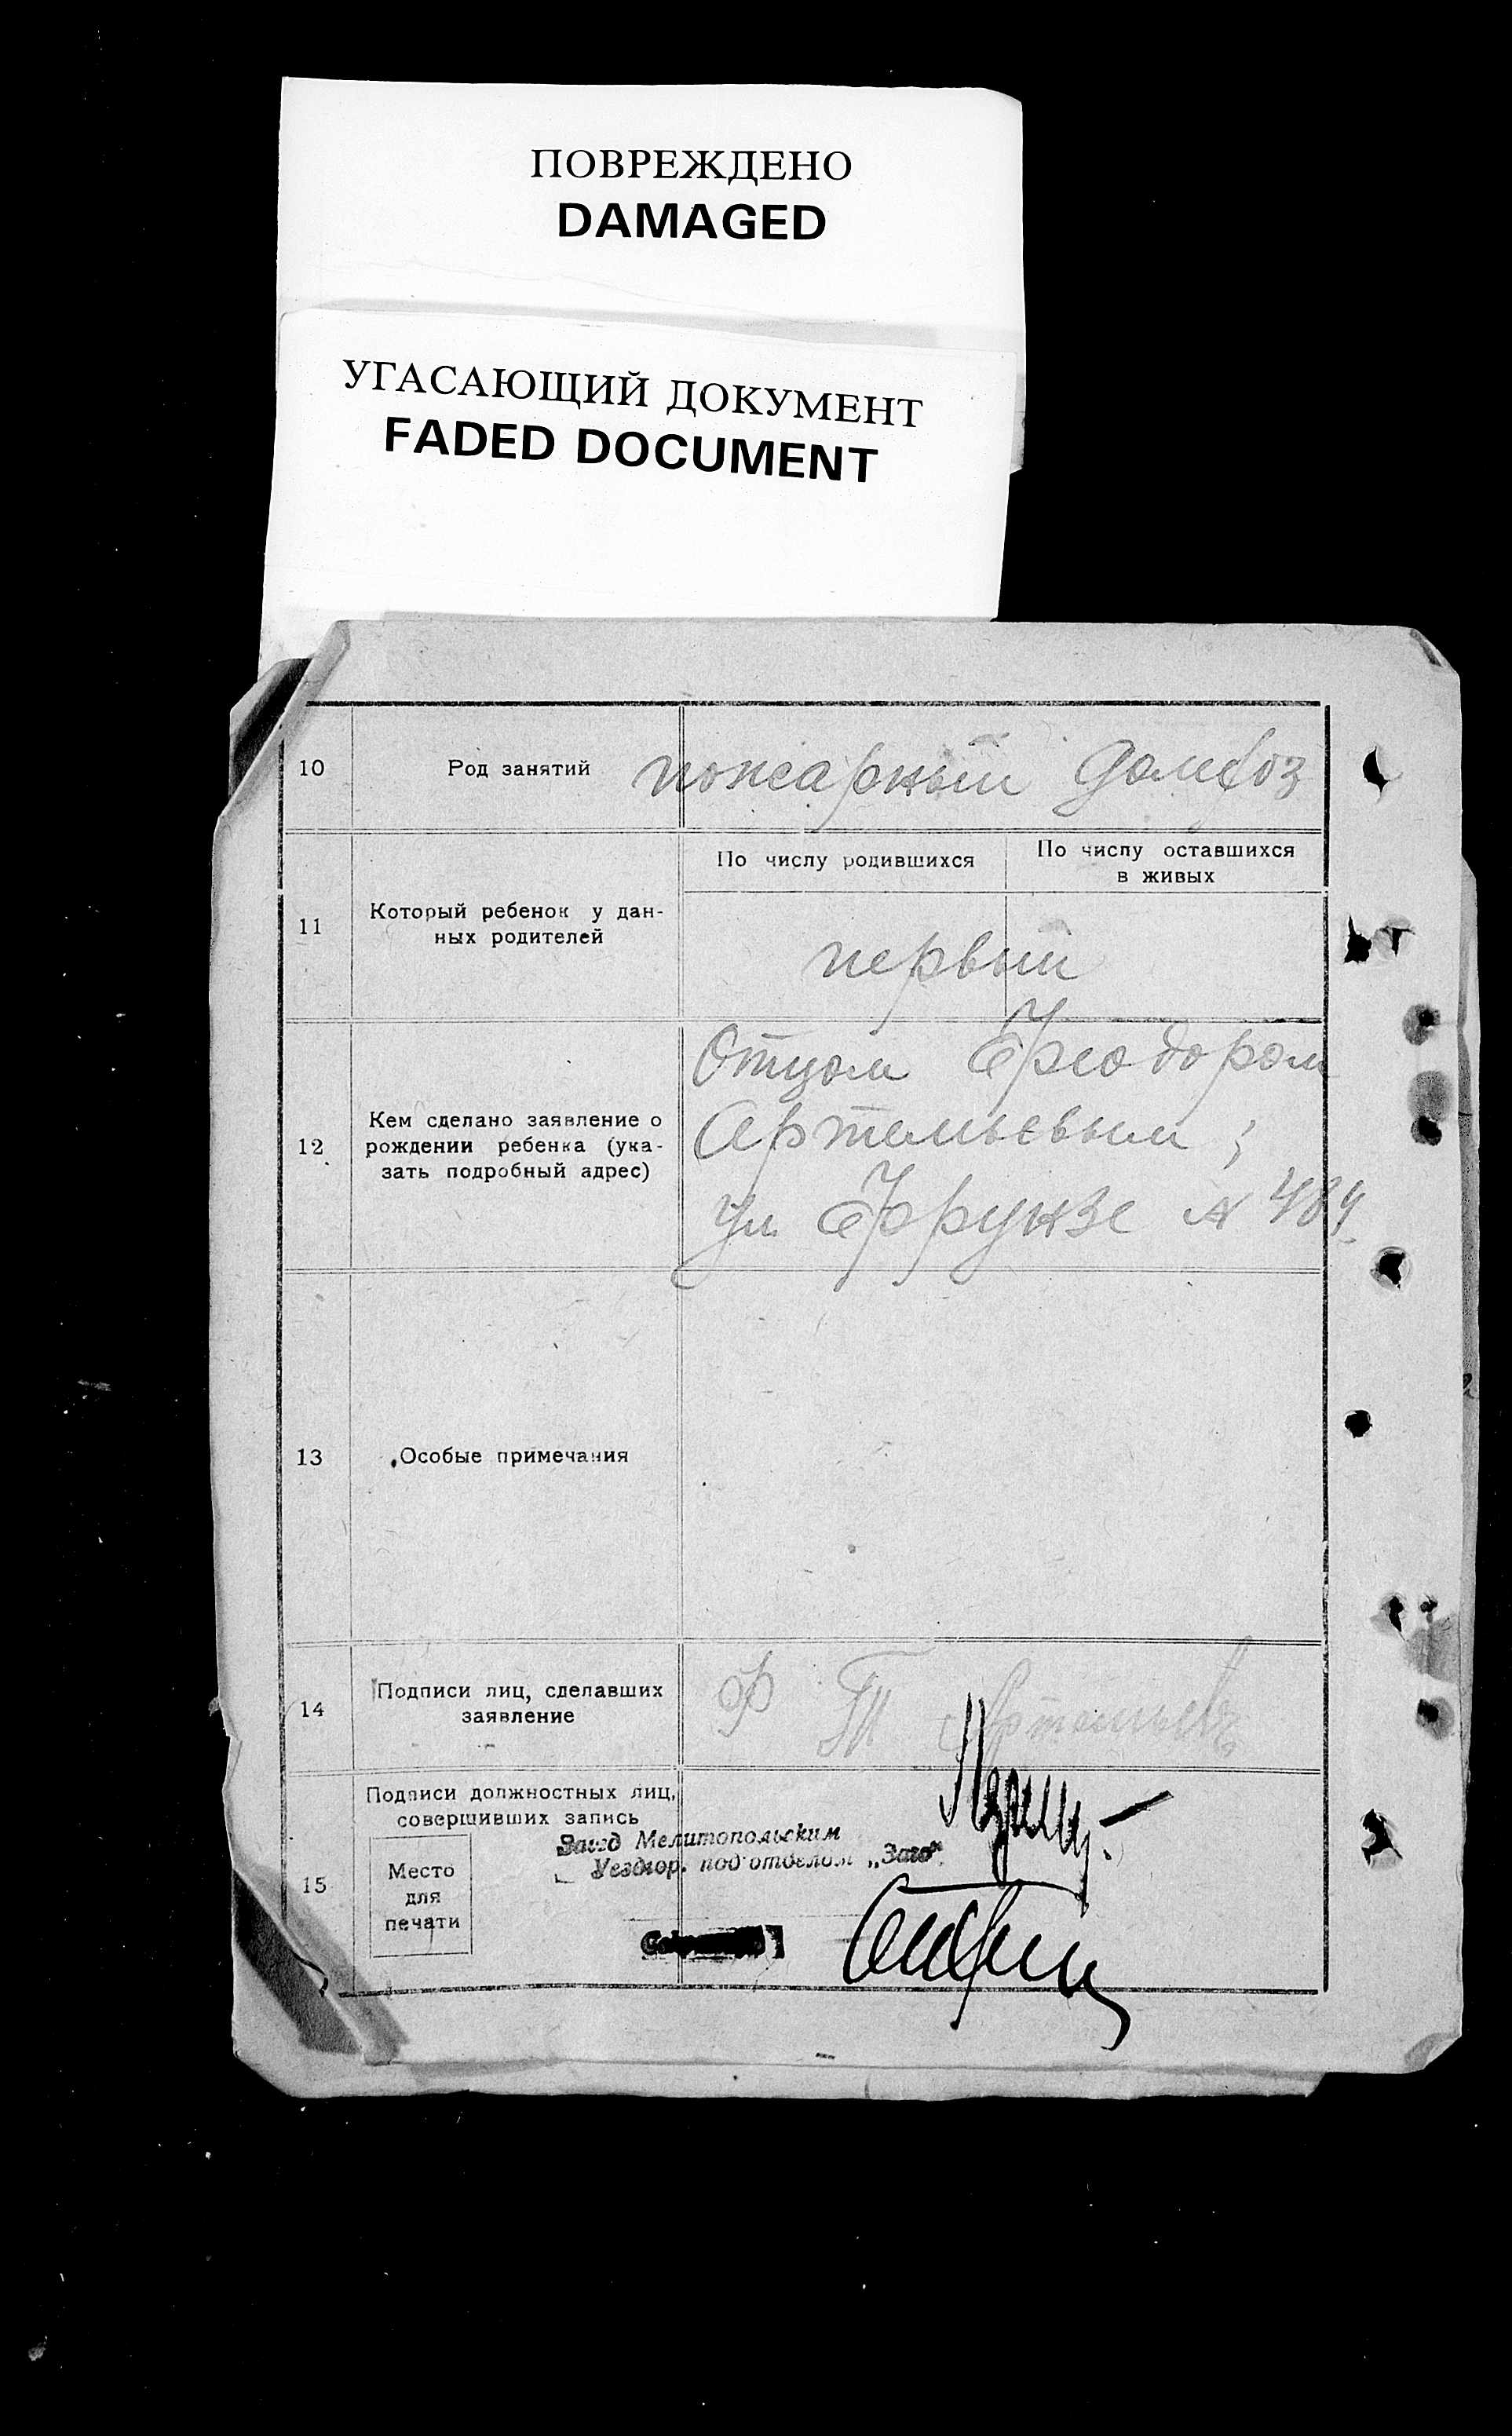 ПОВРЕЖДЕНО
DAMAGED
УГАСАЮЩИЙ ДОКУМЕНТ
FADED DOCUMENT
10 Род занятий пожарный домхоз
По числу родившихся
По числу оставшихся
в живых
11
Который ребенок у дан-
ных родителей
первый
12
Кем сделано заявление о
рождении ребенка (ука-
зать подробный адрес)
Отцом Феодором
Артемьевым ;
ул. Фрунзе № 484
13 Особые примечания
14
Подписи лиц, сделавших
заявление
Ф Т Артемьев
Подписи должностных лиц,
совершивших запись
Завед Мелитопольским
Уездгор. подотделом „Загс"
15
Место
для
печати